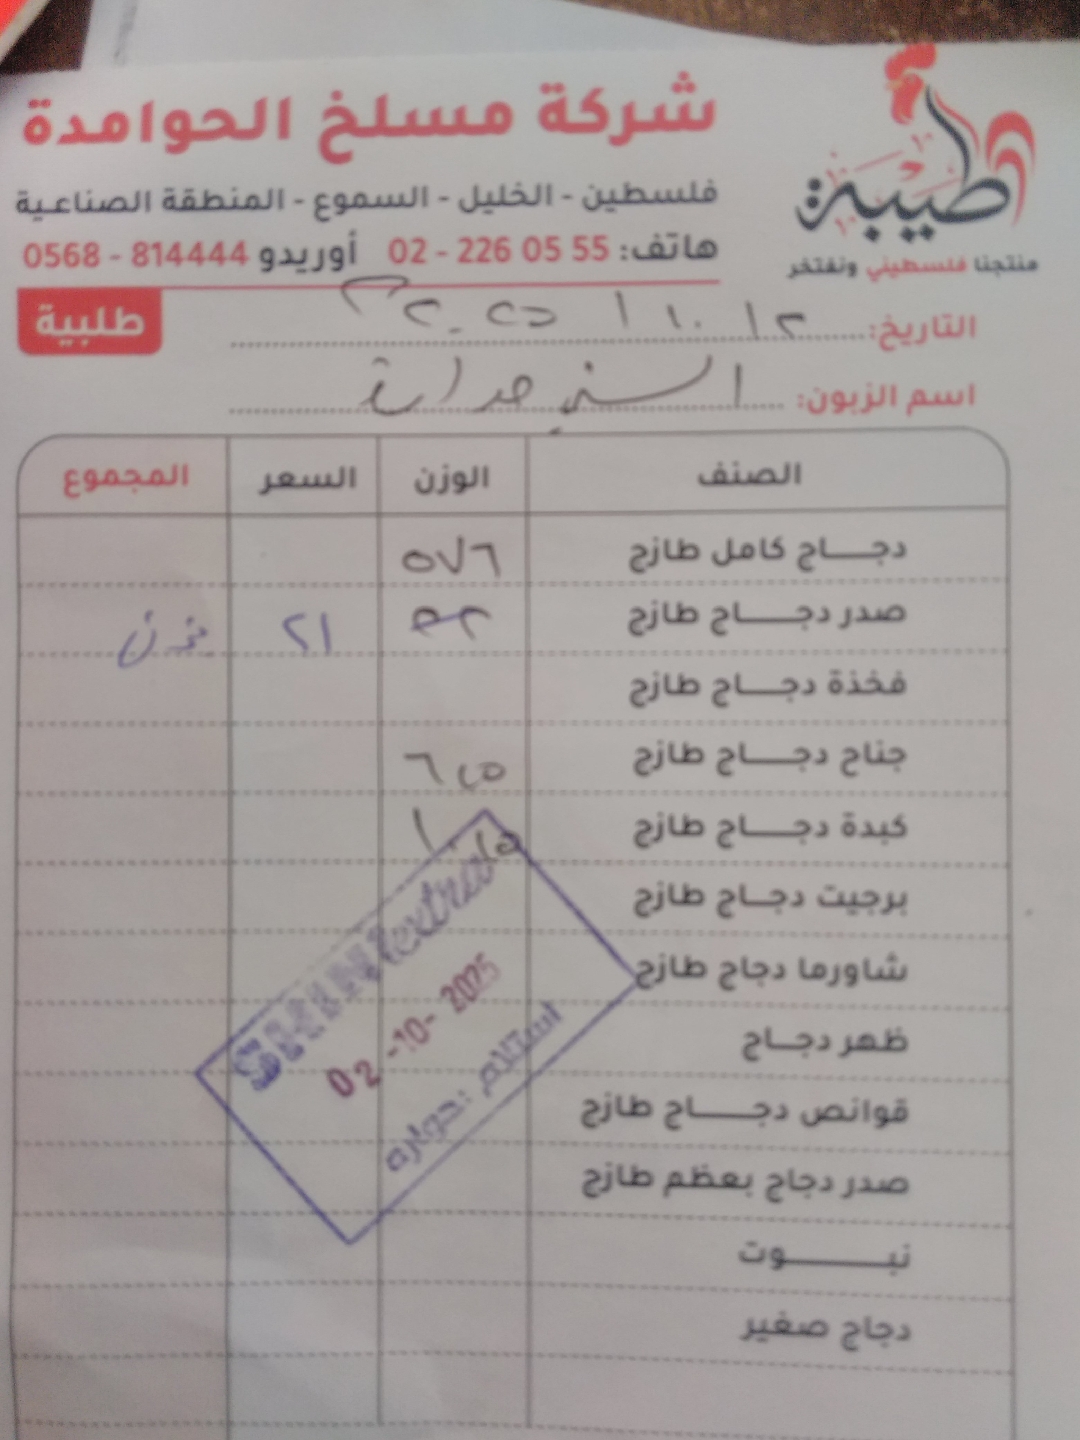 طيبة
منتجنا فلسطيني ونفتخر
شركة مسلخ الحوامدة
فلسطين - الخليل - السموع - المنطقة الصناعية
هاتف: 02 - 226 05 55 أوريدو 0568 - 814444
طلبية
التاريخ: ٢ / ١٠ / ٢٠٢٥
اسم الزبون:
الصنف الوزن السعر المجموع
دجاج كامل طازج ٥٧٦
صدر دجاج طازج ٢١
فخذة دجاج طازج
جناح دجاج طازج
كبدة دجاج طازج
برجيت دجاج طازج
شاورما دجاج طازج
ظهر دجاج
قوانص دجاج طازج
صدر دجاج بعظم طازج
نبوت
دجاج صغير
extra
02 -10- 2025
استلام :حواره